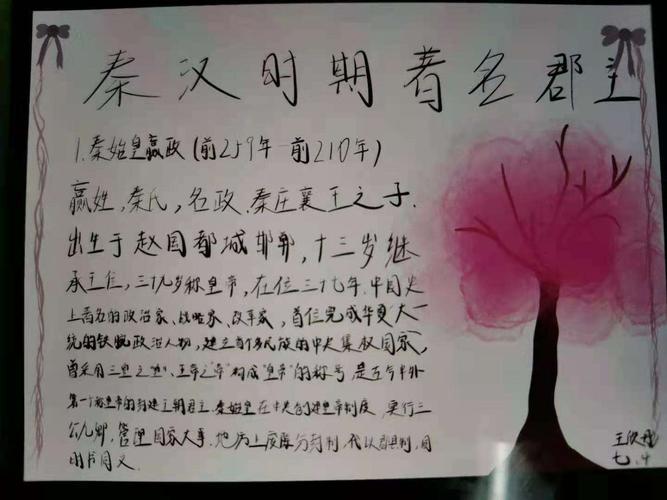 秦汉时期著名郡主
1.秦始皇嬴政(前259年—前210年)
嬴姓,秦氏,名政.秦庄襄王之子.
出生于赵国都城邯郸,十三岁继
承王位,三十九岁称皇帝,在位三十七年.中国史
上著名的政治家、战略家、改革家,首位完成华夏大一
统的铁腕政治人物,建立首个多民族的中央集权国家,
曾采用三皇之"皇"、五帝之"帝"构成"皇帝"的称号.是古今中外
第一个称皇帝的封建王朝君主.秦始皇在中央创建皇帝制度,实行三
公九卿,管理国家大事.地方上废除分封制,代以郡县制,同
时书同文.
七.4